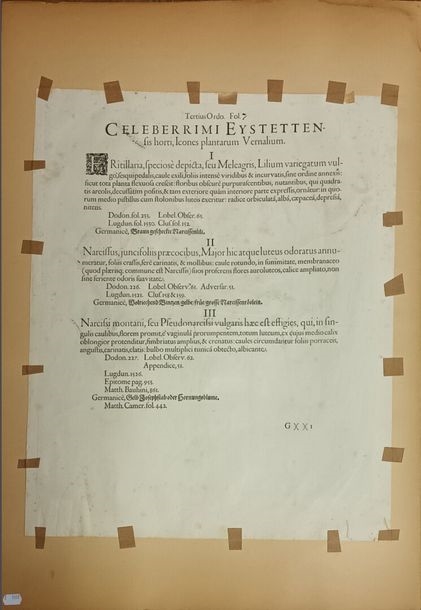 Tertius Ordo. Fol. 7
CELEBERRIMI EYSTETTEN-
sis horti, Icones plantarum Vernalium.
I
FRitillaria, speciosè depicta, seu Meleagris, Lilium variegatum vul-
gò, sesquipedalis, caule exili, foliis intensè viridibus & incurvatis, sine ordine annexis:
ficut tota planta flexuosa crescit: floribus obscurè purpurascentibus, nutantibus, qui quadra-
tis areolis, decussatim positis, & tam exteriore quàm interiore parte expressis, ornitur: in quo-
rum medio pistillus cum stolonibus luteis exeritur: radice orbiculata, alba, cæpacea, depressa,
nitens.
Dodon. fol. 233. Lobel. Obser. 65.
Lugdun. fol. 1530. Clus fol. 152.
Germanicè, Braun geschecte Narcissenlilie.
II
Narcissus, juncifoliis præcocibus, Major hic atque luteus odoratus annu-
meratur, foliis crassis, ferè carinatis, & mollibus: caule rotundo, in summitate, membranaceo
( quod plerinq; commune est Narcissis) suos proferens flores aureoluteos, calice ampliato, non
sine feriente odoris suavitate.
Dodon. 226. Lobel Observ. 61. Adversar. 51.
Lugdun. 1523. Clus. 158 & 159.
III
Narcisi montani, seu Pseudonarcissi vulgaris hæc est effigies, qui, in sin-
gulis caulibus, florem promit, è vaginula prorumpentem, totum luteum, ex cujus medio calyx
oblongior protenditur, fimbriatus amplius, & crenatus: caules circumdantur foliis porraceis,
angustis, carinatis, elatis: bulbo multiplici tunicâ obtecto, albicante.
Dodon. 227. Lobel. Observ. 62.
Appendice, 51.
Lugdun. 1526.
Epitome pag. 953.
Matth. Bauhini, 861.
Germanicè, Gelb Josephstab oder Hornungsblume.
Matth. Camer. fol. 442.
G X X 1